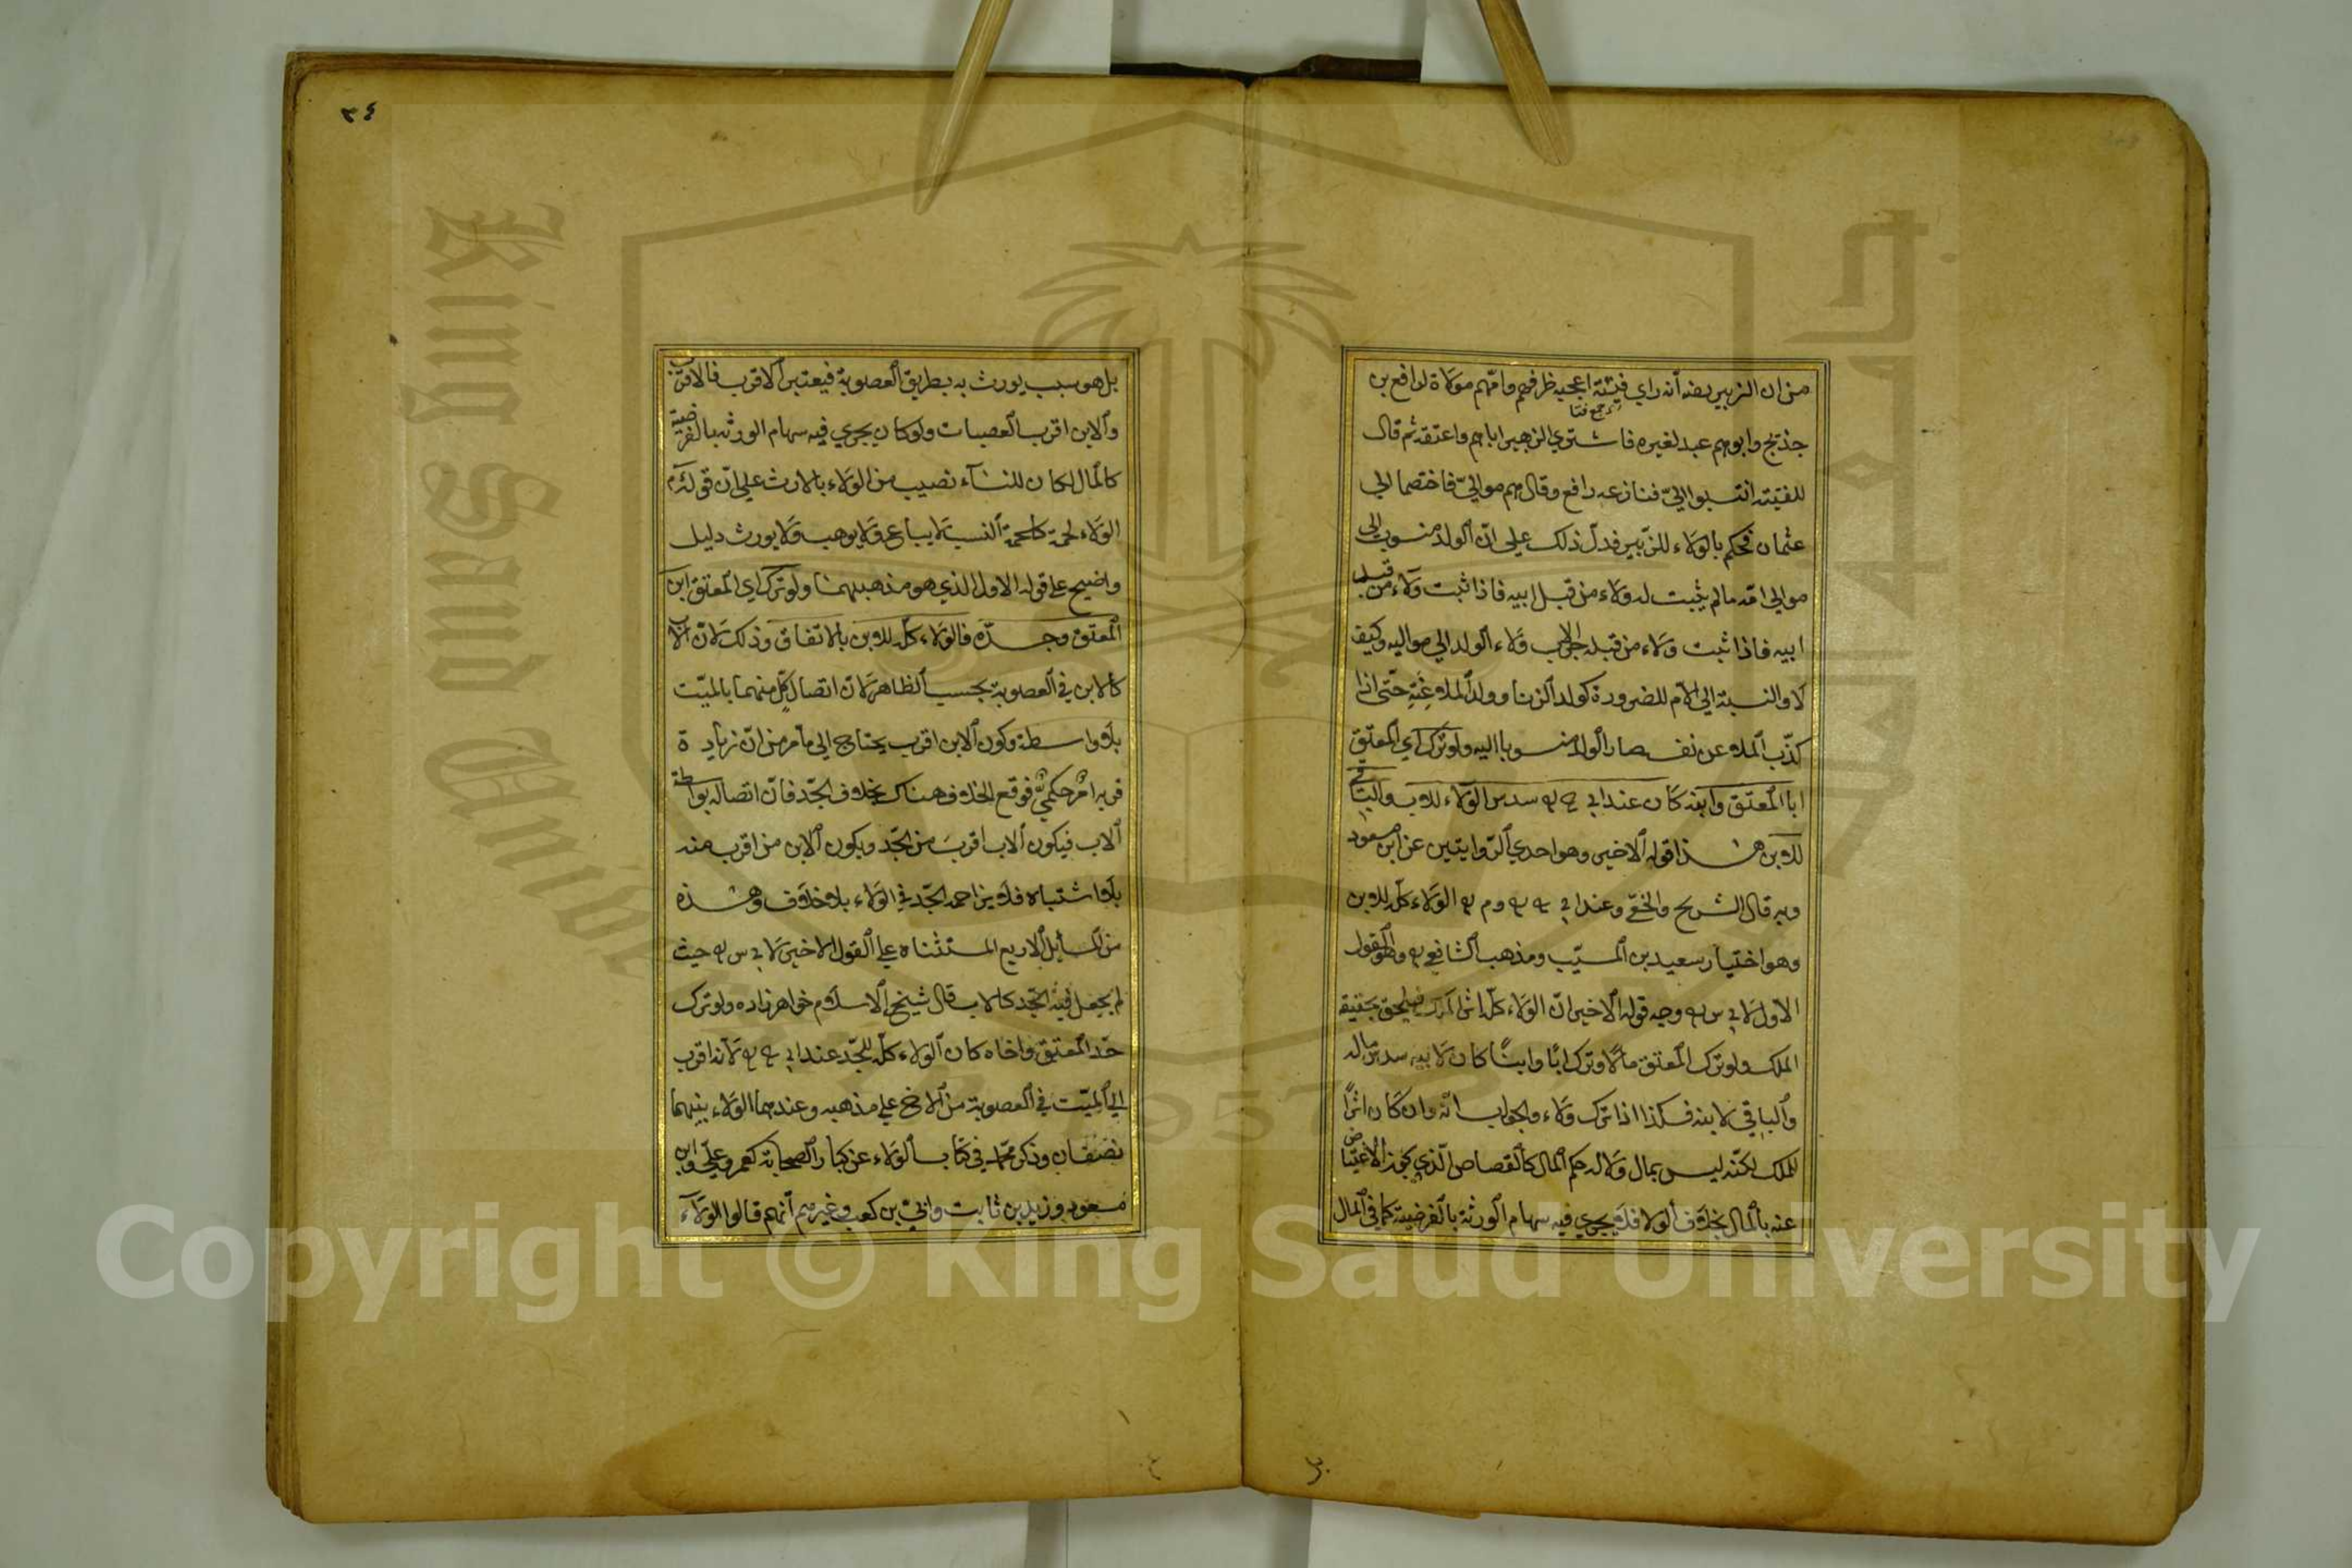 من ان الزبير رضه أنه راي فيتتة اعجبه ظرفهم وامهم مولاة لرافع بن
جمع فتا
خديج وابوهم عبد لغيره فاشتري الزبير اباهم واعتقه ثم قال
للفتيته انتسبوا اليّ فنازعه رافع وقال هم مواليّ فاختصما الي
عثمان فحكم بالولاء للزبير فدلّ ذلك علي انّ الولد منسوب الي
موالي امّه مالم يثبت له ولاء من قبل ابيه فاذا ثبت ولاء من قبل
ابيه فاذا ثبت ولاء من قبله جرّ الاب ولاء الولد الي مواليه وكيف
لا والنسبة الي الأم للضرورة كولد الزنا وولد الملاعنة حتّى اذا
كذّب الملاعن نفسه صار الولد منسوبا اليه ولو ترك اي المعتق
ابا المعتق وابنه كان عند ابي سدس الولاء للاب والباقي
للابن هذا قوله الاخير وهو احدي الرّوايتين عن ابن مسعود
وبه قال الشريح والنخعي وعند ابي الولاء كلّه للابن
وهو اختيار سعيد بن المسيّب ومذهب الشافعي وهو القول
الاول لابي س وجه قوله الاخير انّ الولاء كلّه اثر الملك فيلحق بحقيقة
الملك ولو ترك المعتق مالا وترك ابًا وابنًا كان لابيه سدس ماله
والباقي لابنه فكذا اذا ترك ولاء والجواب انّه وان كان اثرًا
للملك لكنّه ليس بمال ولا له حكم المال كالقصاص الّذي يجوز الاعتياض
عنه بالمال بخلاف الولا فلا يجري فيه سهام الورثة بالفرضية كما في المال
٣٤
بل هو سبب يورث به بطريق العصوبة فيعتبر الاقرب فالاقرب
والابن اقرب العصبات ولو كان يجري فيه سهام الورثه بالفرضية
كالمال لكان للنسآء نصيب من الولاء بالارث علي انّ قوله عم
الولاء لحمة كلحمة النسب لا يباع ولا يوهب ولا يورث دليل
واضح علي قوله الاول الذي هو مذهبهما ولو ترك اي المعتق ابن
المعتق وجدّه فالولاء كلّه للابن بالاتفاق وذلك لانّ الاب
كالابن في العصوبة بحسب الظاهر لانّ اتصال كلّ منهما بالميّت
بلا واسطة وكون الابن اقرب يحتاج الي مامر من انّ زيادة
قربه امرٌ حكميٌّ فوقع الخلاف هناك بخلاف الجّد فانّ اتصاله بواسطة
الاب فيكون الاب اقرب من الجّد ويكون الابن من اقرب منه
بلا اشتباه فلا يزاحمه الجّد في الولاء بلا خلاف وهذه
من المسايل الاربع المستثناه علي القول الاخير لابي س حيث
لم يجعل فيه الجّد كالاب قال شيخ الاسلام خواهر زاده ولو ترك
جّد المعتق واخاه كان الولاء كلّه للجّد عند ابي لانه اقرب
الي الميّت في العصوبة من الاخ علي مذهبه وعندهما الولاء بينهما
نصفان وذكر محّمد في كتاب الولاء عن كبار الصحابة كعمر وعليّ وابن
مسعود وزيد بن ثابت وابيّ بن كعب وغيرهم أنهم قالوا الولاء
Copyright © King Saud University
King Saud University
جامعة الملك سعود
1957